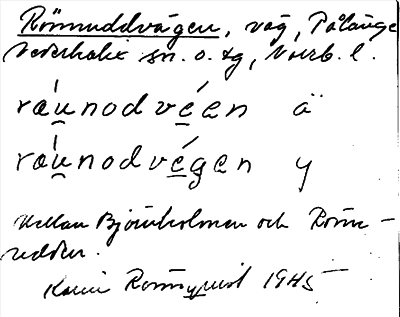 Römuddvägen, väg, Pålänge
Nederkalix sn. o. tg, Norrb. l.
ráu̯nodvé̱en ä
ráu̯nodvé̱gen y
Mellan Björnholmen och Röm-
udden.
Karin Rönnqvist 1945